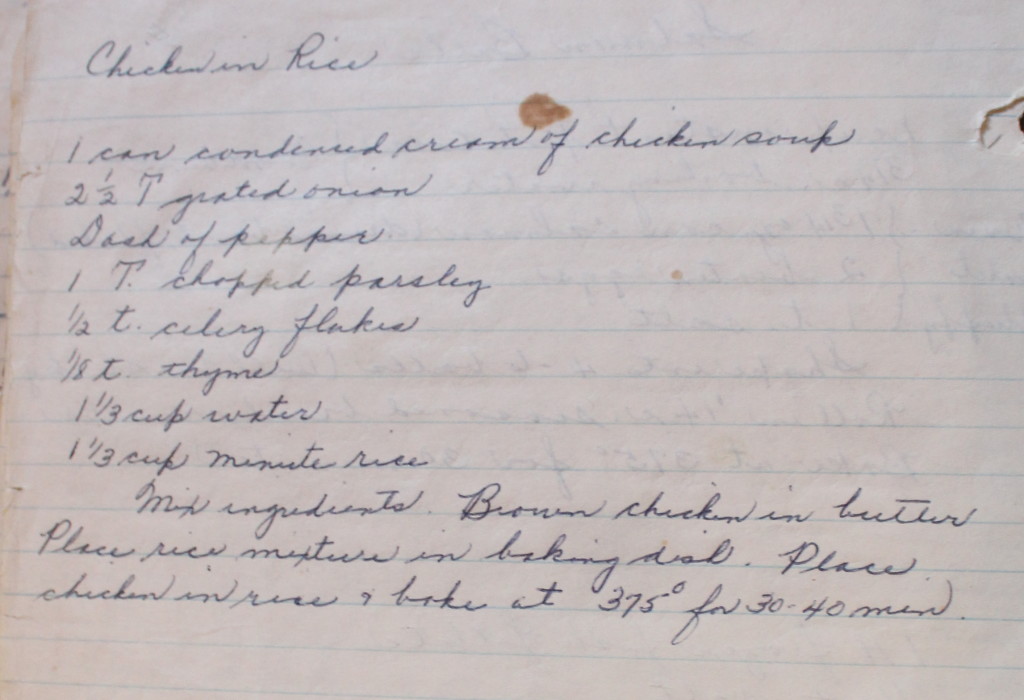 Chicken in Rice
1 can condensed cream of chicken soup
2 1/2 T grated onion
Dash of pepper
1 T. chopped parsley
1/2 t. celery flakes
1/8 t. thyme
1 1/3 cup water
1 1/3 cup minute rice
Mix ingredients. Brown chicken in butter
Place rice mixture in baking dish. Place
chicken in rice & bake at 375° for 30-40 min.